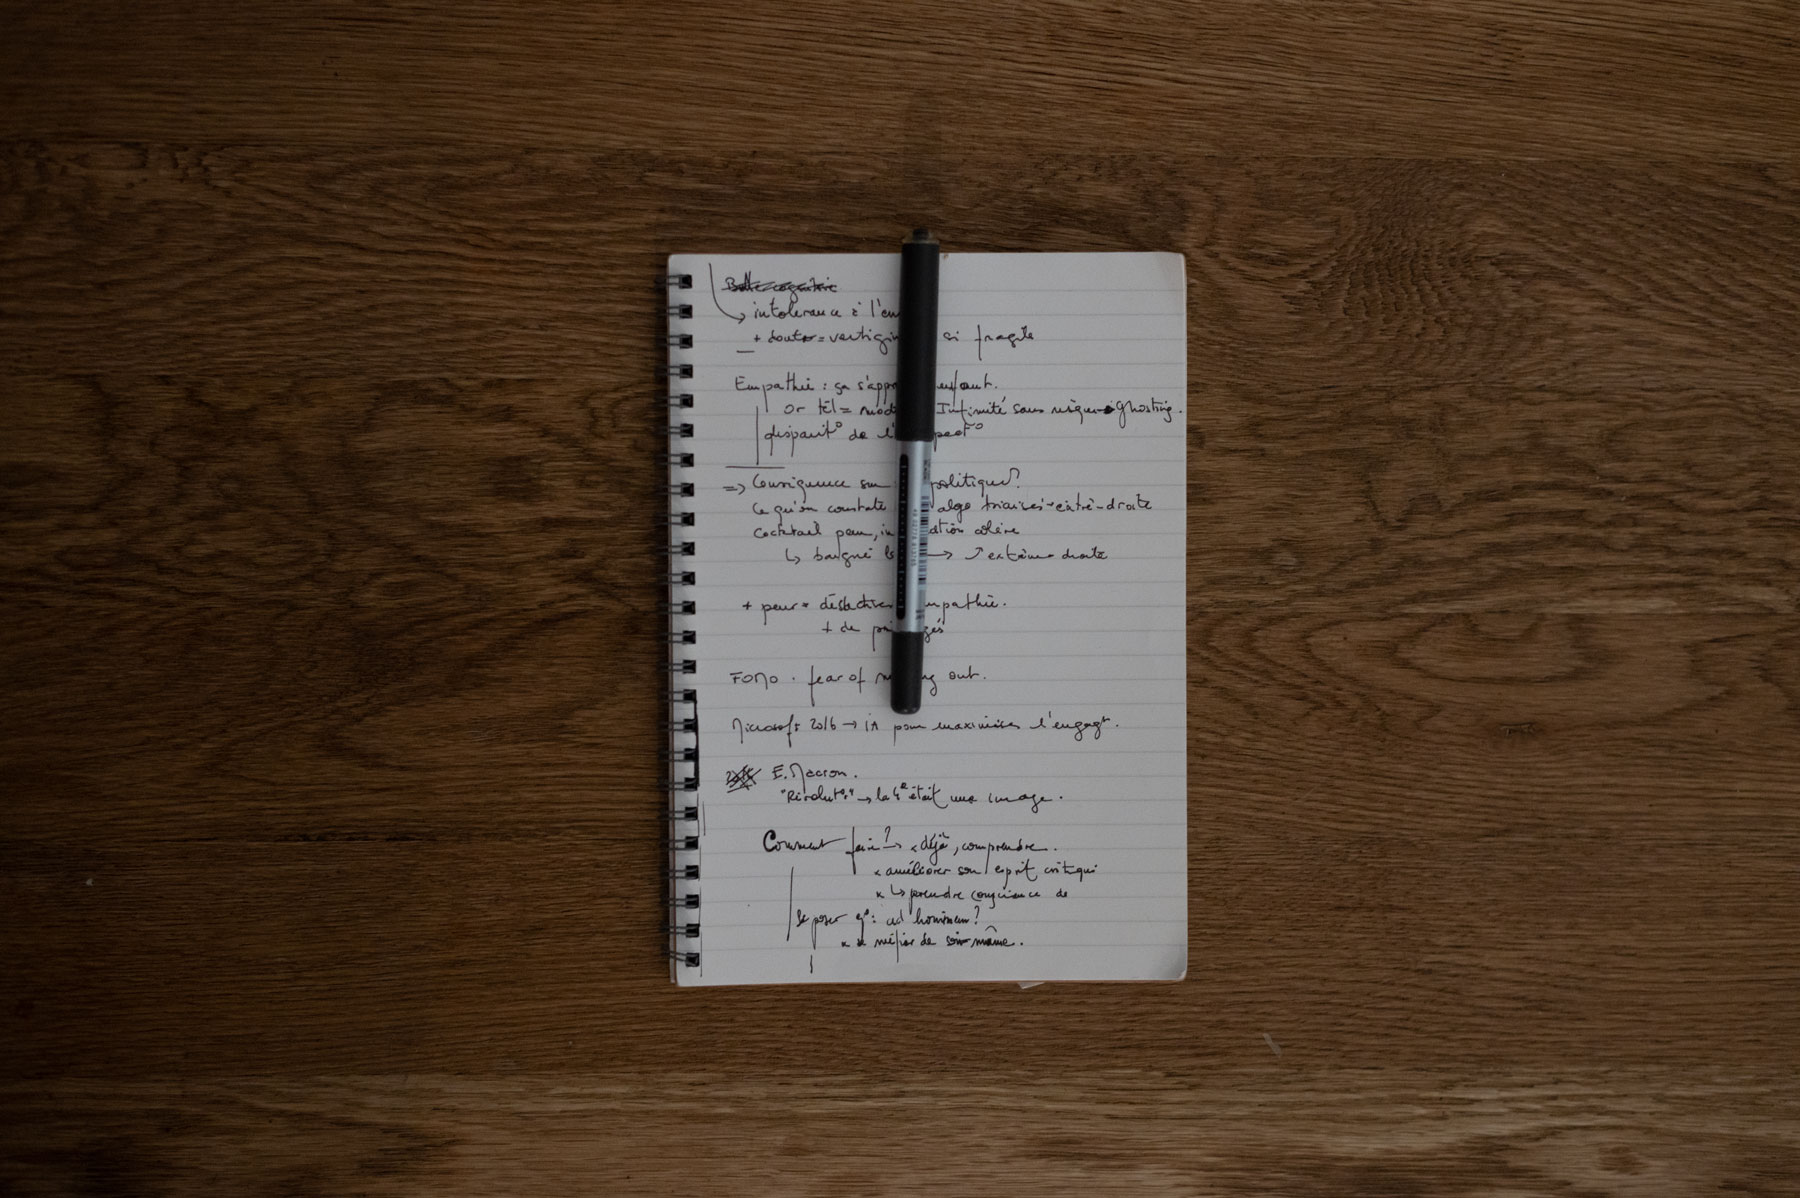 intolerance à l'en
+ doute = vertigin si fragile
Empathie : ça s'appr enfant.
Or tél = mod Intimité sans risque → Ghosting.
disparit° de l'
=> Conséquence sur politique ?
Ce qu'on constate algo
Cocktail peur, in ation colère
↳ → ↗ extrême droite
+ peur = désactive mpathie.
+ de p gés
FOMO . fear of m ng out.
Microsoft 2016 → IA pour maximiser l'engagt.
E. Macron.
"Révolut°" → la était une image.
Comment faire ? → × déjà, comprendre.
× améliorer son esprit critique
× ↳ prendre conscience de
Se poser q° : ad hominem ?
× se méfier de soi-même.